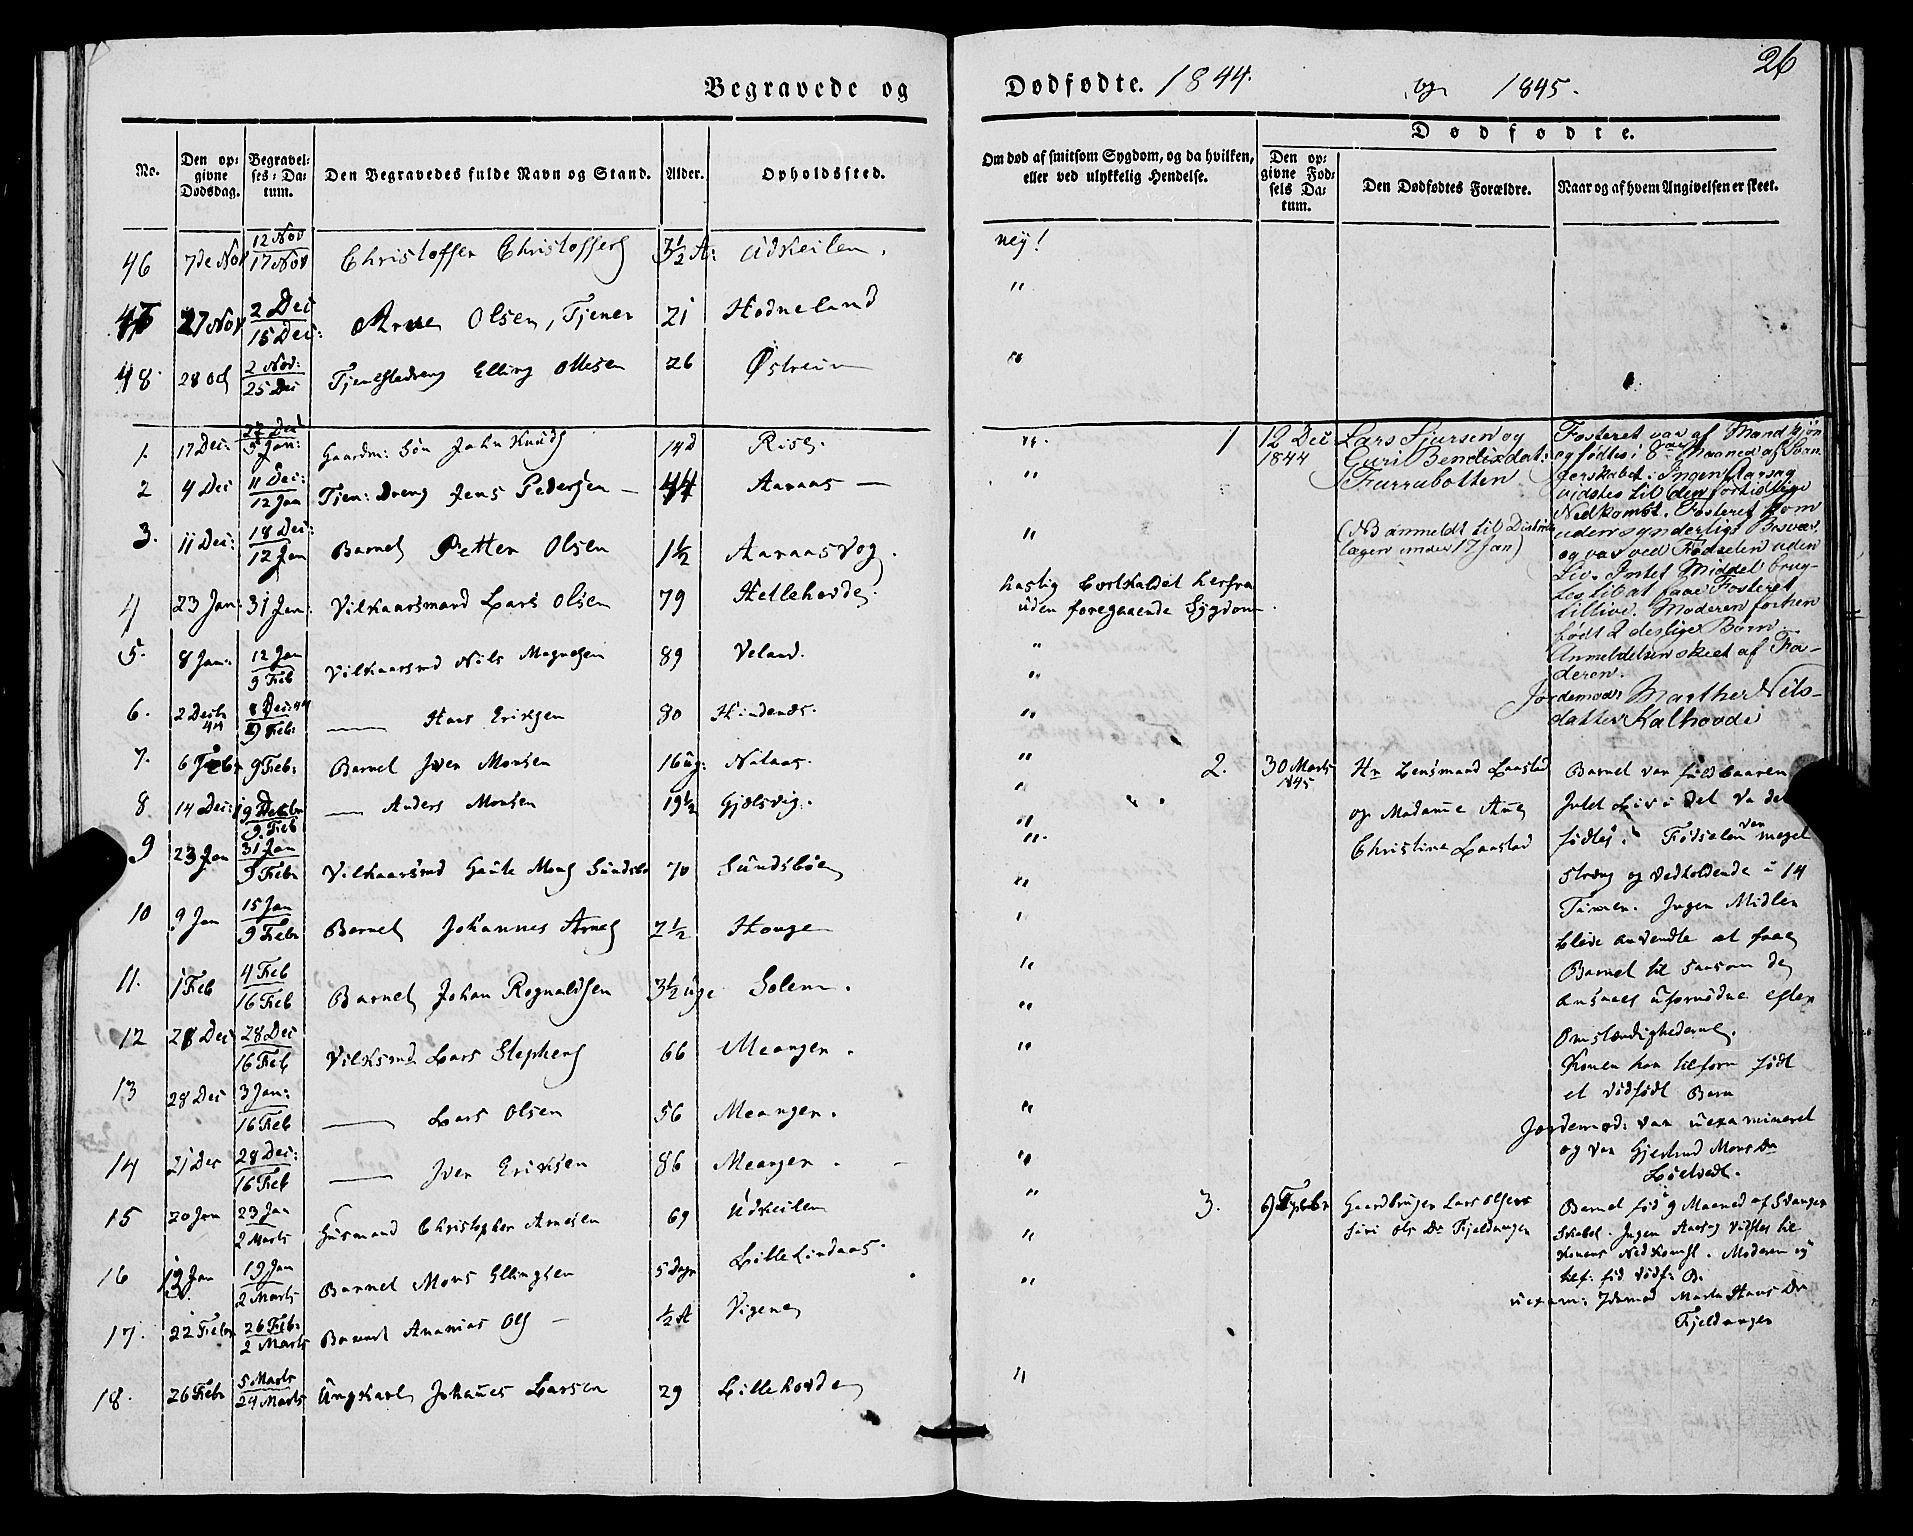 26
Begravede og Dødfødte. 1844. og 1845.
No.
Den opgivne Dødsdag.
Begravelses-Datum.
Den Begravedes fulde Navn og Stand.
Alder.
Opholdssted.
Om død af smitsom Sygdom, og da hvilken, eller ved ulykkelig Hendelse.
Dødfødte.
Den opgivne Fødsels Datum.
Den Dødfødtes Forældre.
Naar og af hvem Angivelsen er skeet.
46 7de Nov 12 Nov 17 Nov Christoffer Christoffers 3½ A: Udkeilen. ney!
47 27 Nov 2 Dec 15 Dec: Olsen, Tjener 21 Hodneland "
48 28 Oct 2 Nov: 25 Dec Tjenestedreng Elling Ollesen 26 Østreim "
1. 17 Dec: 27 Dec 5 Jan: Gaardm: Søn John Knuds 14 d Rise. "
2 4 Dec 11 Dec: 12 Jan Tjen: Dreng Jens Pedersen — 44 Aaraas — "
3. 11 Dec: 18 Dec: 12 Jan Barnet Petter Olsen 1½ Aaraasvog. "
4 23 Jan: 31 Jan: Vilkaarsmand Lars Olsen 79 Hellehovde. hastig bortkaldet herfra
uden foregaaende Sygdom.
5. 8 Jan: 12 Jan 9 Feb Vilkaarsmd Nils Magnesen 89 Veland. "
6. 2 Decb 44 8 Dec: 44 9 Feb: — Hans Eriksen 80 Hindenes. "
7. 6 Febr 9 Feb: Barnet Iver Monsen 16 ug: Nataas. "
8 14 Dec: 19 Decbr 9. Feb — Anders Monsen 19½ Gjelsvig. "
9 23 Jan 31 Jan 9 Febr Vilkaarsmd Gaute Mons Sundsbø 70 Sundsbøe "
10 9 Jan 15 Jan 9 Febr Barnet Johannes Arnes 7½ Houge "
11. 1 Feb 4 Feb 16 Feb Barnet Johan Rognaldsen 3½ uge Solem. "
12 28 Dec 28 Dec 16 Feb Vilksmd Lars Stephens 66 Meanger. "
13 28 Dec 3 Jan: 16 Feb — Lars Olsen 56 Meanger. "
14 21 Dec 28 Dec: 16 Feb — Iver Eriksen 86 Meanger. "
15 20 Jan 23 Jan 2 Marts Huusmand Christopher Arnesen 69 Udkeilen "
16 Jan 19 Jan 2 Marts Barnet Mons Ellingsen 5 Dage Lille Lindaas. "
17. 22 Febr 26 Feb: 2 Marts Barnet Ananias Ols — ½ A Vigene "
18. 26 Febr 5 Marts 24 Marts Ungkarl Johanes Larsen 29 Lillehovde "
1 12 Dec 1844
Lars Sjursen og
Guri Bendixdat:
Furrubotten
(NB anmeldt til Districts
lægen under 17 Jan)
Fosteret var af Mandkjøn
og fødtes i 8de Maaned af Svan
gerskabet. Ingen Aarsag
vidstes til den fortidlige
Nedkomst. Fosteret kom
uden synderligt Besvær
og var ved Fødselen uden
Liv. Intet Middel brug
tes til at faae Fosteret
tillive. Moderen forhen
født 2 deslige Børn.
Anmeldelsen skeet af Fa-
deren.
Jordemoder Marthe Nils-
datter Kalhovde
2. 30 Marts 1845
Hr Lensmand Laastad
og Madame Ane
Christine Laastad
Barnet var fuldbaaren
Intet Liv i det da det
fødtes. Fødselen var meget
streng og vedholdende i 14
Timer. Ingen Midler
bleve anvendte at faae
Barnet til saasom de
ansaaes ufornødne efter
Omstændighederne.
Konen har tilforn født
et dødfødt Barn
Jordemod: var uexamineret
og var Gjertrud Mons Dr
3. 9 Febr
Gaardbruger Lars Olsen
Siri Ols Dr Fjeldanger
Barnet fød 9 Maaned af Svanger
skabet. Ingen Aarsag vidstes til
Konens Nedkomst. Moderen ey
tilf: fød dødf: B.
uexam: Jdemod Marta Hans Dr
Fjeldanger